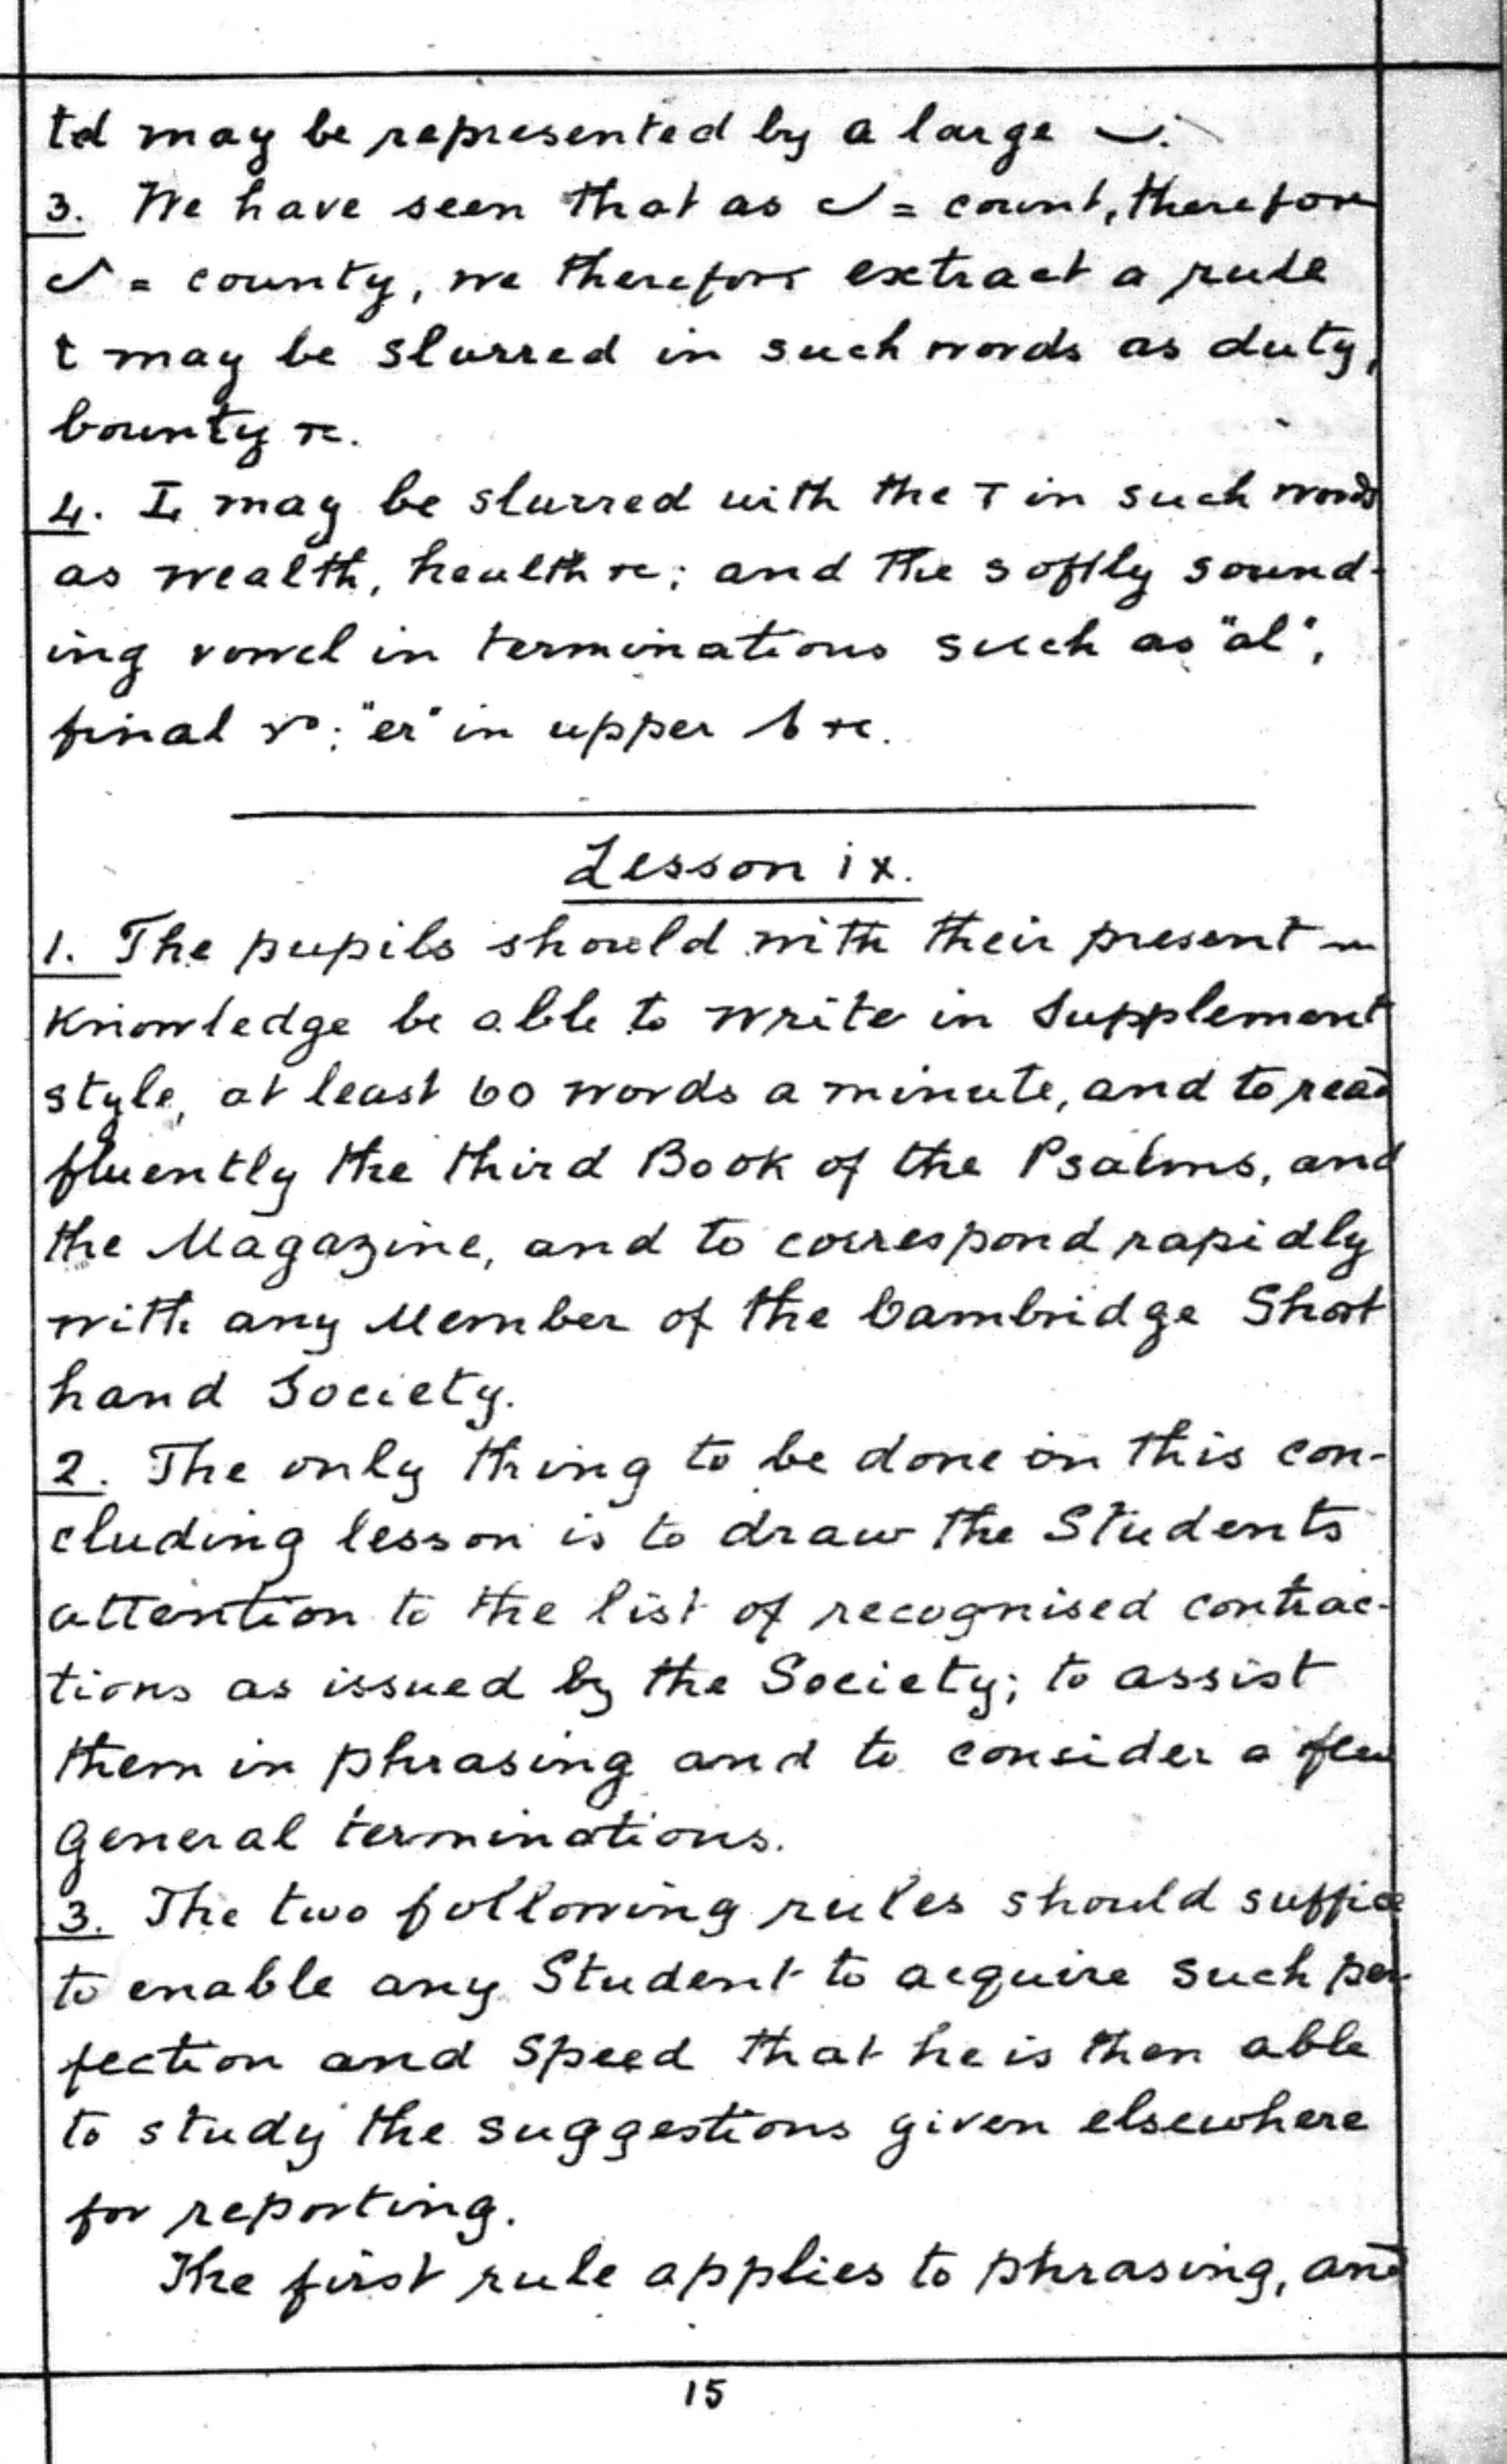 td may be represented by a large
3. We have seen that as = count, therefore
= county, we therefore extract a rule
t may be slurred in such words as duty,
bounty &c.
4. L may be slurred with the T in such words
as wealth, health &c; and the softly sound-
ing vowel in terminations such as "al",
final ; "er" in upper &c.
Lesson ix.
1. The pupils should with their present
knowledge be able to write in Supplement
style, at least 60 words a minute, and to read
fluently the third Book of the Psalms, and
the Magazine, and to correspond rapidly
with any Member of the Cambridge Short
hand Society.
2. The only thing to be done in this con-
cluding lesson is to draw the Students
attention to the list of recognised contrac-
tions as issued by the Society; to assist
them in phrasing and to consider a few
general terminations.
3. The two following rules should suffice
to enable any Student to acquire such per-
fection and speed that he is then able
to study the suggestions given elsewhere
for reporting.
The first rule applies to phrasing, and
15